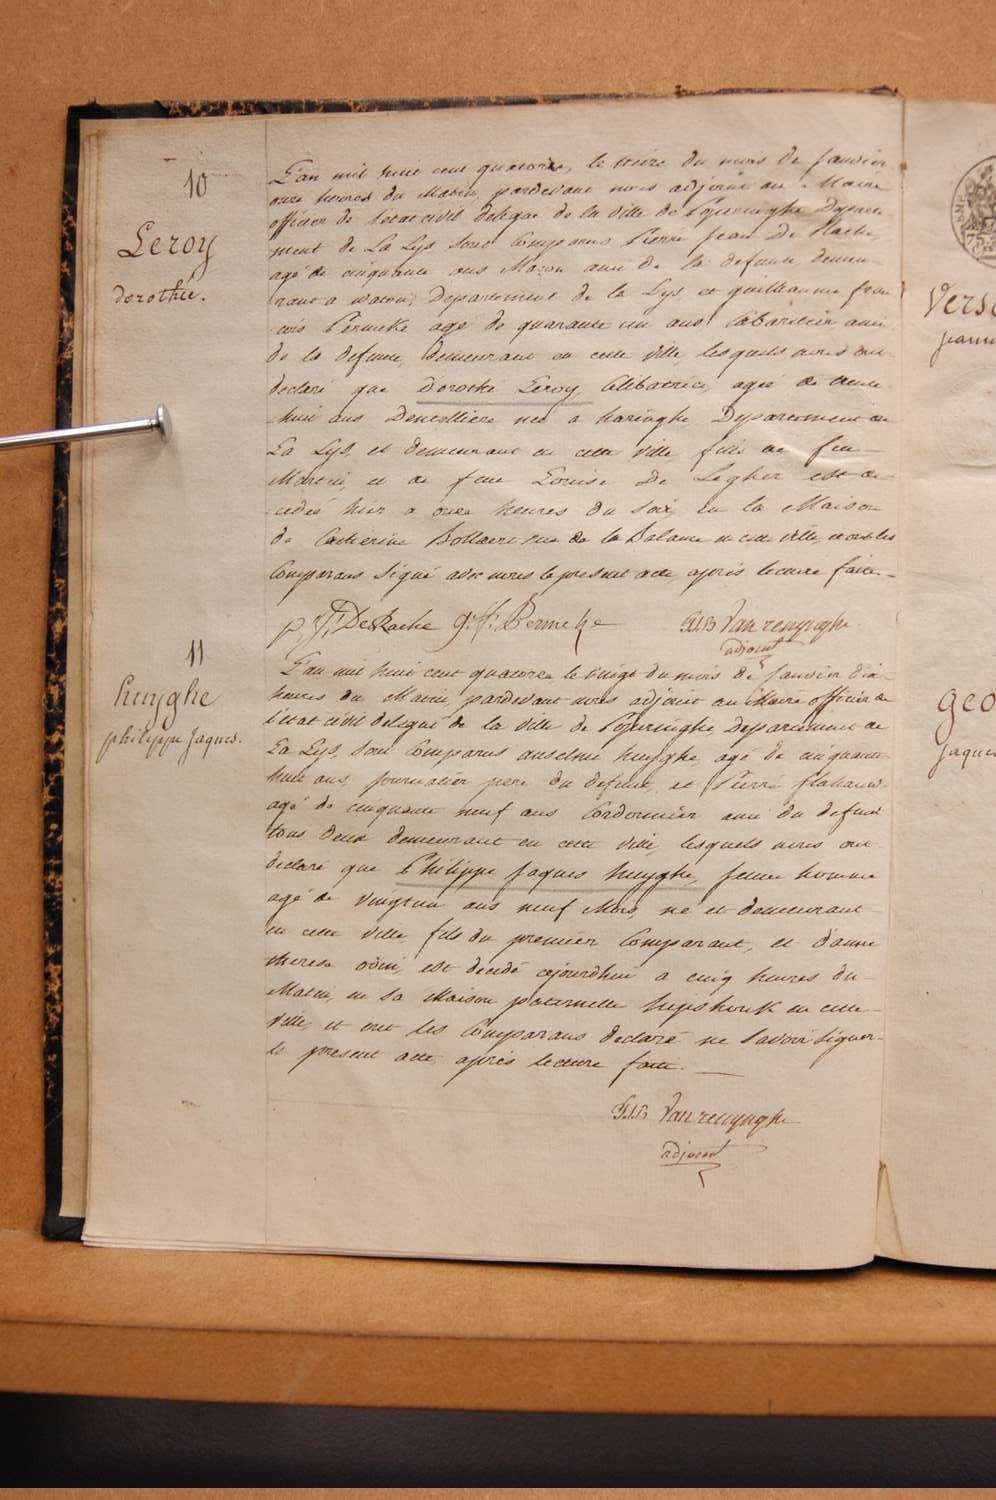 10
Leroy
dorothée.
L'an mil huit cent quatorze, le treize du mois de Janvier
onze heures du Matin, pardevant nous adjoint au Maire
officier de l'état civil delegué de la ville de Poperinghe Departe
ment de La Lys sont Comparus Pierre Jean De Rache
agé de cinquante ans Maçon ami de la defunte demeu-
rant a watou, Departement de la Lys, et guilliaume fran
cois Pernicke agé de quarante un ans Cabaretier ami
de la defunte, demeurant en cette ville, lesquels nous ont
declaré que Dorothé Leroy Célibatrice, agée de trente
huit ans Dentellière née a haringhe Departement de
La Lys, et demeurant en cette ville fille de feu
Martin, et de feue Louise De Legher est de
cédée hier a onze heures du Soir, en la Maison
de Catherine Bollaert rue de la Balance en cette ville, et ont les
Comparans Signé avec nous le present acte, après lecture faite.
p, J, De Rache g: f: Pernicke P.J.B Van renynghe
adjoint
11
huyghe
philippe Jaques.
L'an mil huit cent quatorze le vingt du mois de Janvier dix
heures du Matin, pardevant nous adjoint au Maire officier de
l'état civil delegué de la ville de Poperinghe Departement de
La Lys, sont Comparus anselme huyghe, agé de cinquante
huit ans, journalier pere du defunt, et Pierre flahauw
agé de cinquante neuf ans Cordonnier ami du defunt
tous deux demeurant en cette ville, lesquels nous ont
declaré que Philippe Jaques huyghe, Jeune homme
agé de vingtun ans neuf Mois, né et demeurant
en cette ville fils du premier Comparant, et d'anne
therese odin, est décédé cejourd'hui a cinq heures du
Matin, en sa Maison paternelle hepshoek en cette
ville, et ont les Comparans declaré ne Savoir Signer
le present acte, après lecture faite.
P.J.B Van renynghe
adjoint
Vers
jeann
geo
jaques